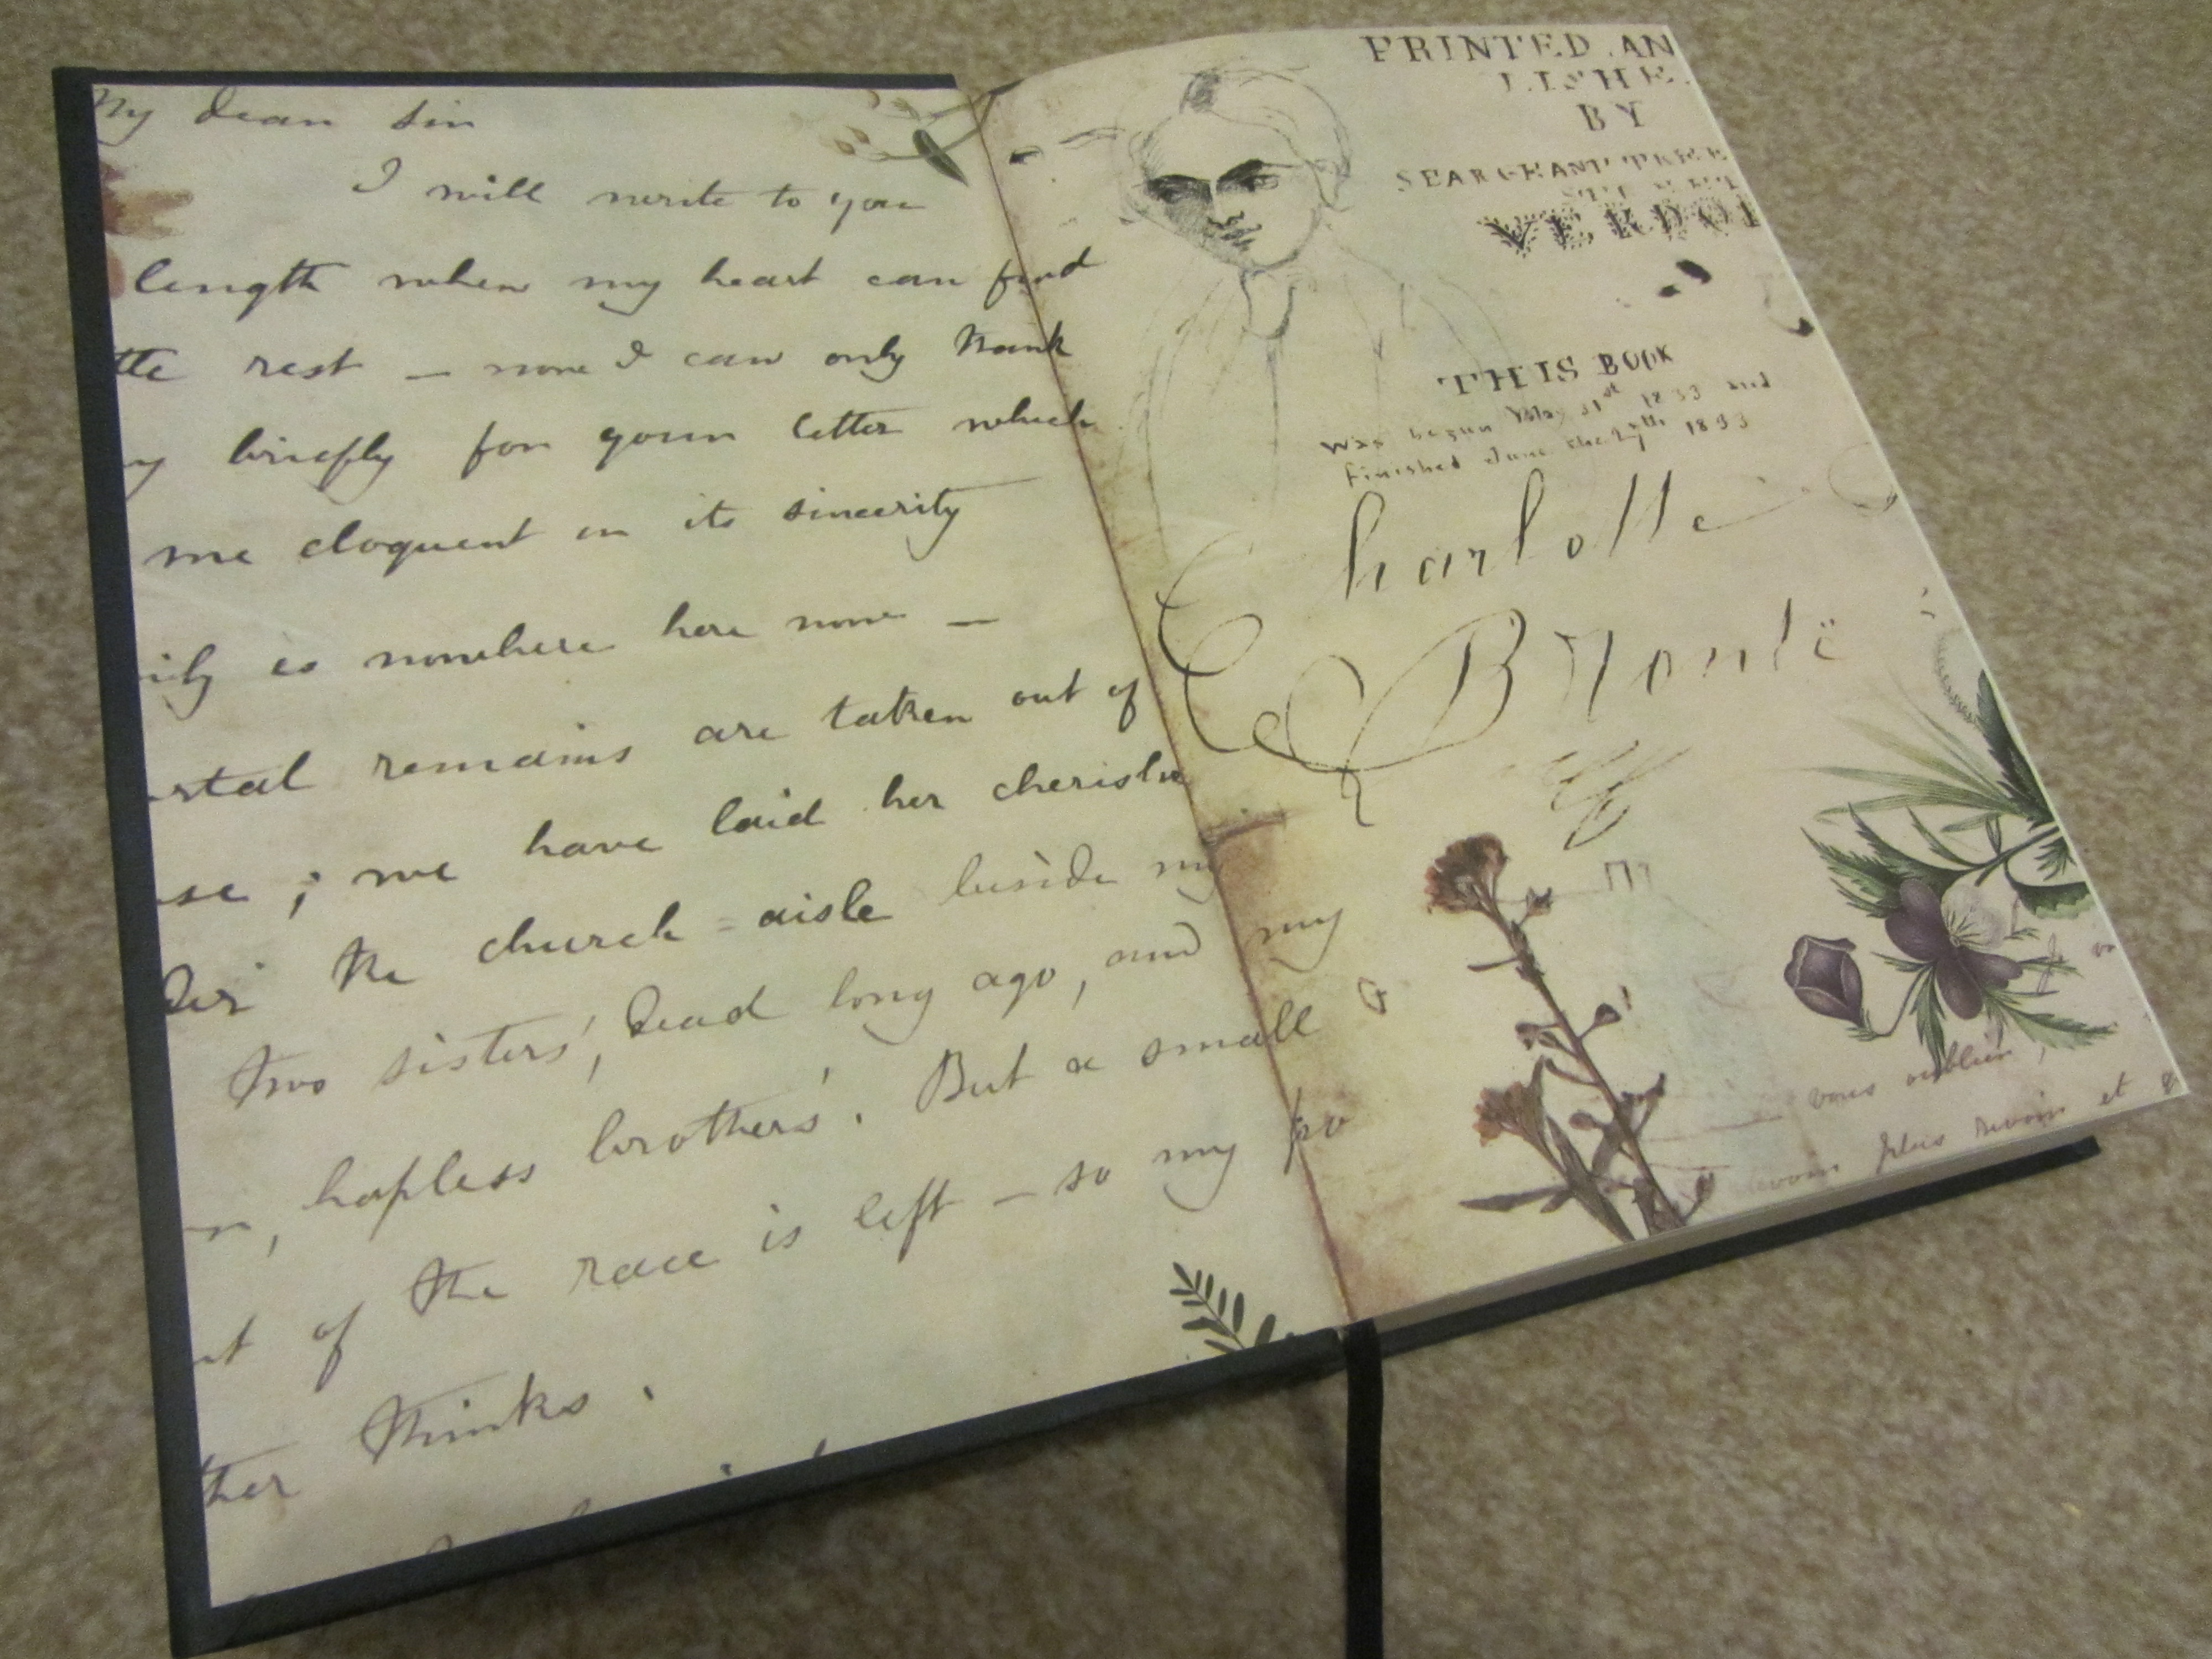 My dear Sir
I will write to you
length when my heart can find
ttle rest — now I can only thank
y briefly for your letter which
me eloquent in its sincerity
ily is nowhere here now —
rtal remains are taken out of
se; we have laid her cherishe
der the church-aisle beside my
two sisters', dead long ago, and my
hapless brothers'. But a small
of the race is left — so my
ther thinks.
PRINTED AN
LISHE
BY
VERDOP
THIS BOOK
was begun May 31st 1833 and
Finished June the 27th 1833
Charlotte
Brontë
vous oublier,
plus revoir et